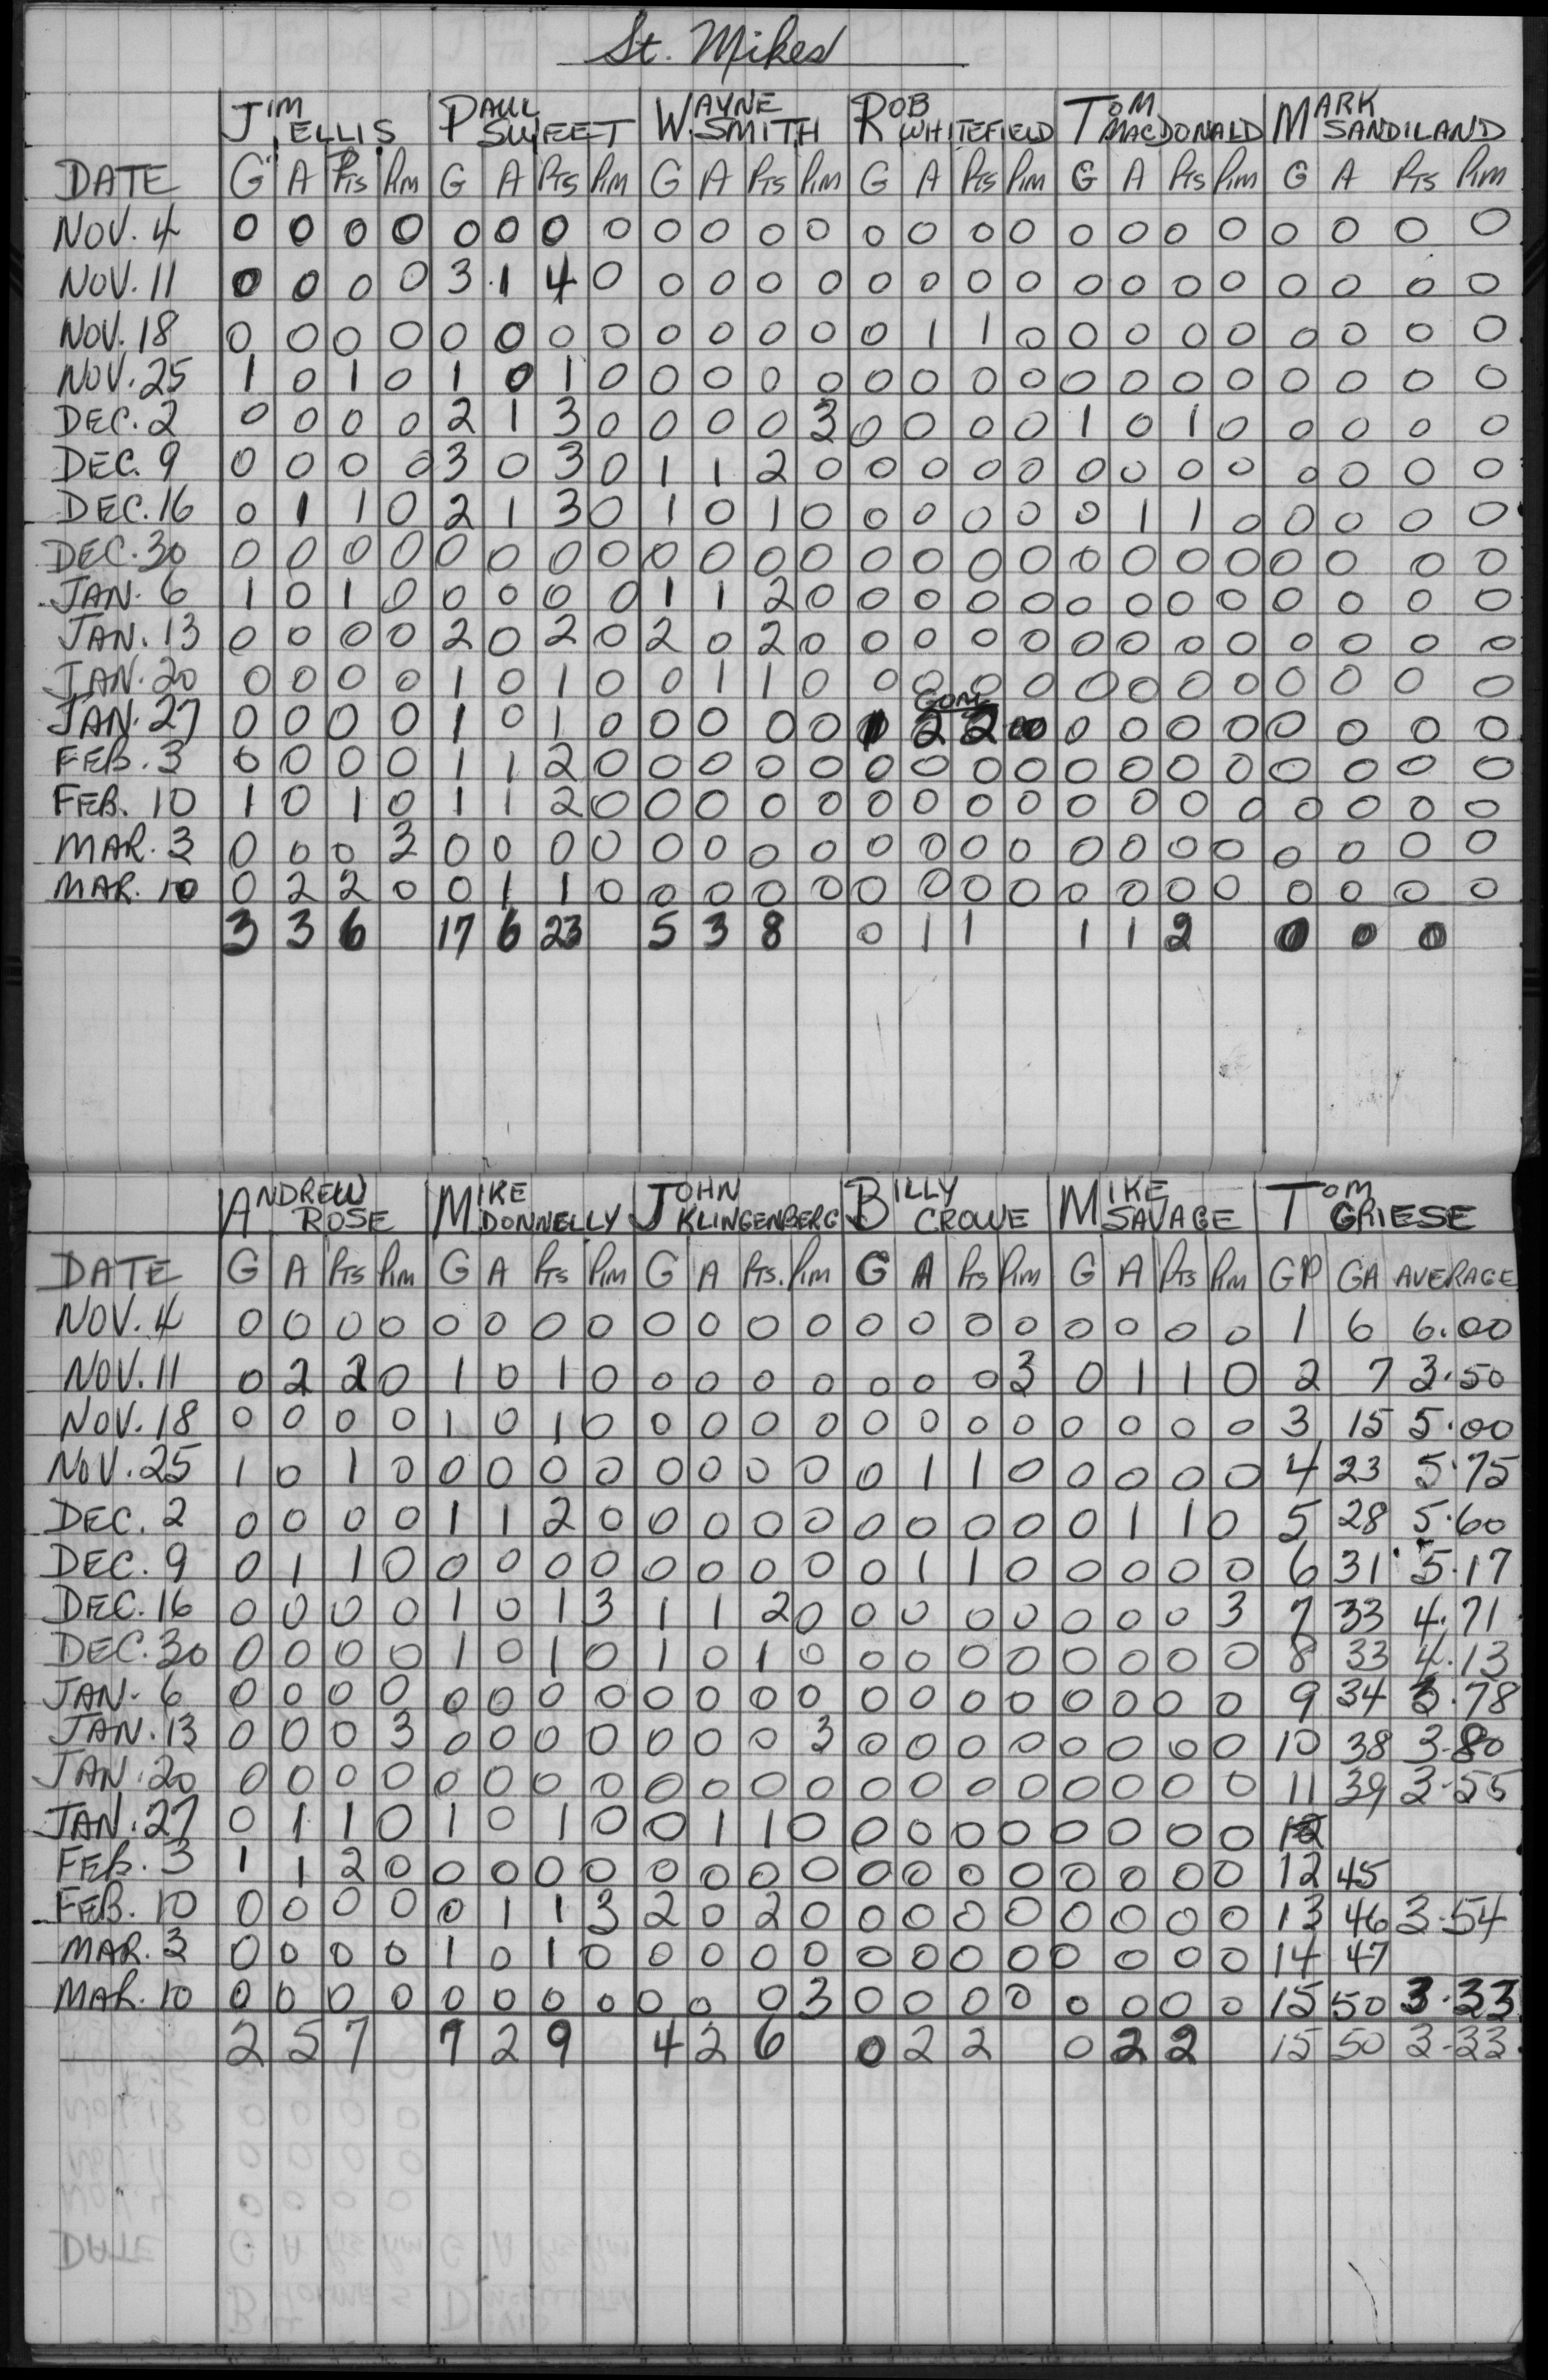 St. Mikes
JIM ELLIS PAUL SWEET WAYNE SMITH ROB WHITEFIELD TOM MACDONALD MARK SANDILAND
DATE G A Pts Pim G A Pts Pim G A Pts Pim G A Pts Pim G A Pts Pim G A Pts Pim
NOV. 4 0 0 0 0 0 0 0 0 0 0 0 0 0 0 0 0 0 0 0 0 0 0 0 0
NOV. 11 0 0 0 0 3 1 4 0 0 0 0 0 0 0 0 0 0 0 0 0 0 0 0 0
NOV. 18 0 0 0 0 0 0 0 0 0 0 0 0 0 1 1 0 0 0 0 0 0 0 0 0
NOV. 25 1 0 1 0 1 0 1 0 0 0 0 0 0 0 0 0 0 0 0 0 0 0 0 0
DEC. 2 0 0 0 0 2 1 3 0 0 0 0 3 0 0 0 0 1 0 1 0 0 0 0 0
DEC. 9 0 0 0 0 3 0 3 0 1 1 2 0 0 0 0 0 0 0 0 0 0 0 0 0
DEC. 16 0 1 1 0 2 1 3 0 1 0 1 0 0 0 0 0 0 1 1 0 0 0 0 0
DEC. 30 0 0 0 0 0 0 0 0 0 0 0 0 0 0 0 0 0 0 0 0 0 0 0 0
JAN. 6 1 0 1 0 0 0 0 0 1 1 2 0 0 0 0 0 0 0 0 0 0 0 0 0
JAN. 13 0 0 0 0 2 0 2 0 2 0 2 0 0 0 0 0 0 0 0 0 0 0 0 0
JAN. 20 0 0 0 0 1 0 1 0 0 1 1 0 0 0 0 0 0 0 0 0 0 0 0 0
JAN. 27 0 0 0 0 1 0 1 0 0 0 0 0 1 2 2 00 0 0 0 0 0 0 0 0
FEB. 3 0 0 0 0 1 1 2 0 0 0 0 0 0 0 0 0 0 0 0 0 0 0 0 0
FEB. 10 1 0 1 0 1 1 2 0 0 0 0 0 0 0 0 0 0 0 0 0 0 0 0 0
MAR. 3 0 0 0 3 0 0 0 0 0 0 0 0 0 0 0 0 0 0 0 0 0 0 0 0
MAR. 10 0 2 2 0 0 1 1 0 0 0 0 0 0 0 0 0 0 0 0 0 0 0 0 0
3 3 6 17 6 23 5 3 8 0 1 1 1 1 2 0 0 0
ANDREW ROSE MIKE DONNELLY JOHN KLINGENBERG BILLY CROWE MIKE SAVAGE TOM GRIESE
DATE G A Pts Pim G A Pts Pim G A Pts. Pim G A Pts Pim G A Pts Pim GP GA AVERAGE
NOV. 4 0 0 0 0 0 0 0 0 0 0 0 0 0 0 0 0 0 0 0 0 1 6 6.00
NOV. 11 0 2 2 0 1 0 1 0 0 0 0 0 0 0 0 3 0 1 1 0 2 7 3.50
NOV. 18 0 0 0 0 1 0 1 0 0 0 0 0 0 0 0 0 0 0 0 0 3 15 5.00
NOV. 25 1 0 1 0 0 0 0 0 0 0 0 0 0 1 1 0 0 0 0 0 4 23 5.75
DEC. 2 0 0 0 0 1 1 2 0 0 0 0 0 0 0 0 0 0 1 1 0 5 28 5.60
DEC. 9 0 1 1 0 0 0 0 0 0 0 0 0 0 1 1 0 0 0 0 0 6 31 5.17
DEC. 16 0 0 0 0 1 0 1 3 1 1 2 0 0 0 0 0 0 0 0 3 7 33 4.71
DEC. 30 0 0 0 0 1 0 1 0 1 0 1 0 0 0 0 0 0 0 0 0 8 33 4.13
JAN. 6 0 0 0 0 0 0 0 0 0 0 0 0 0 0 0 0 0 0 0 0 9 34 3.78
JAN. 13 0 0 0 3 0 0 0 0 0 0 0 3 0 0 0 0 0 0 0 0 10 38 3.80
JAN. 20 0 0 0 0 0 0 0 0 0 0 0 0 0 0 0 0 0 0 0 0 11 39 3.55
JAN. 27 0 1 1 0 1 0 1 0 0 1 1 0 0 0 0 0 0 0 0 0 12
FEB. 3 1 1 2 0 0 0 0 0 0 0 0 0 0 0 0 0 0 0 0 0 12 45
FEB. 10 0 0 0 0 0 1 1 3 2 0 2 0 0 0 0 0 0 0 0 0 13 46 3.54
MAR. 3 0 0 0 0 1 0 1 0 0 0 0 0 0 0 0 0 0 0 0 0 14 47
MAR. 10 0 0 0 0 0 0 0 0 0 0 0 3 0 0 0 0 0 0 0 0 15 50 3.33
2 5 7 7 2 9 4 2 6 0 2 2 0 2 2 15 50 3.33